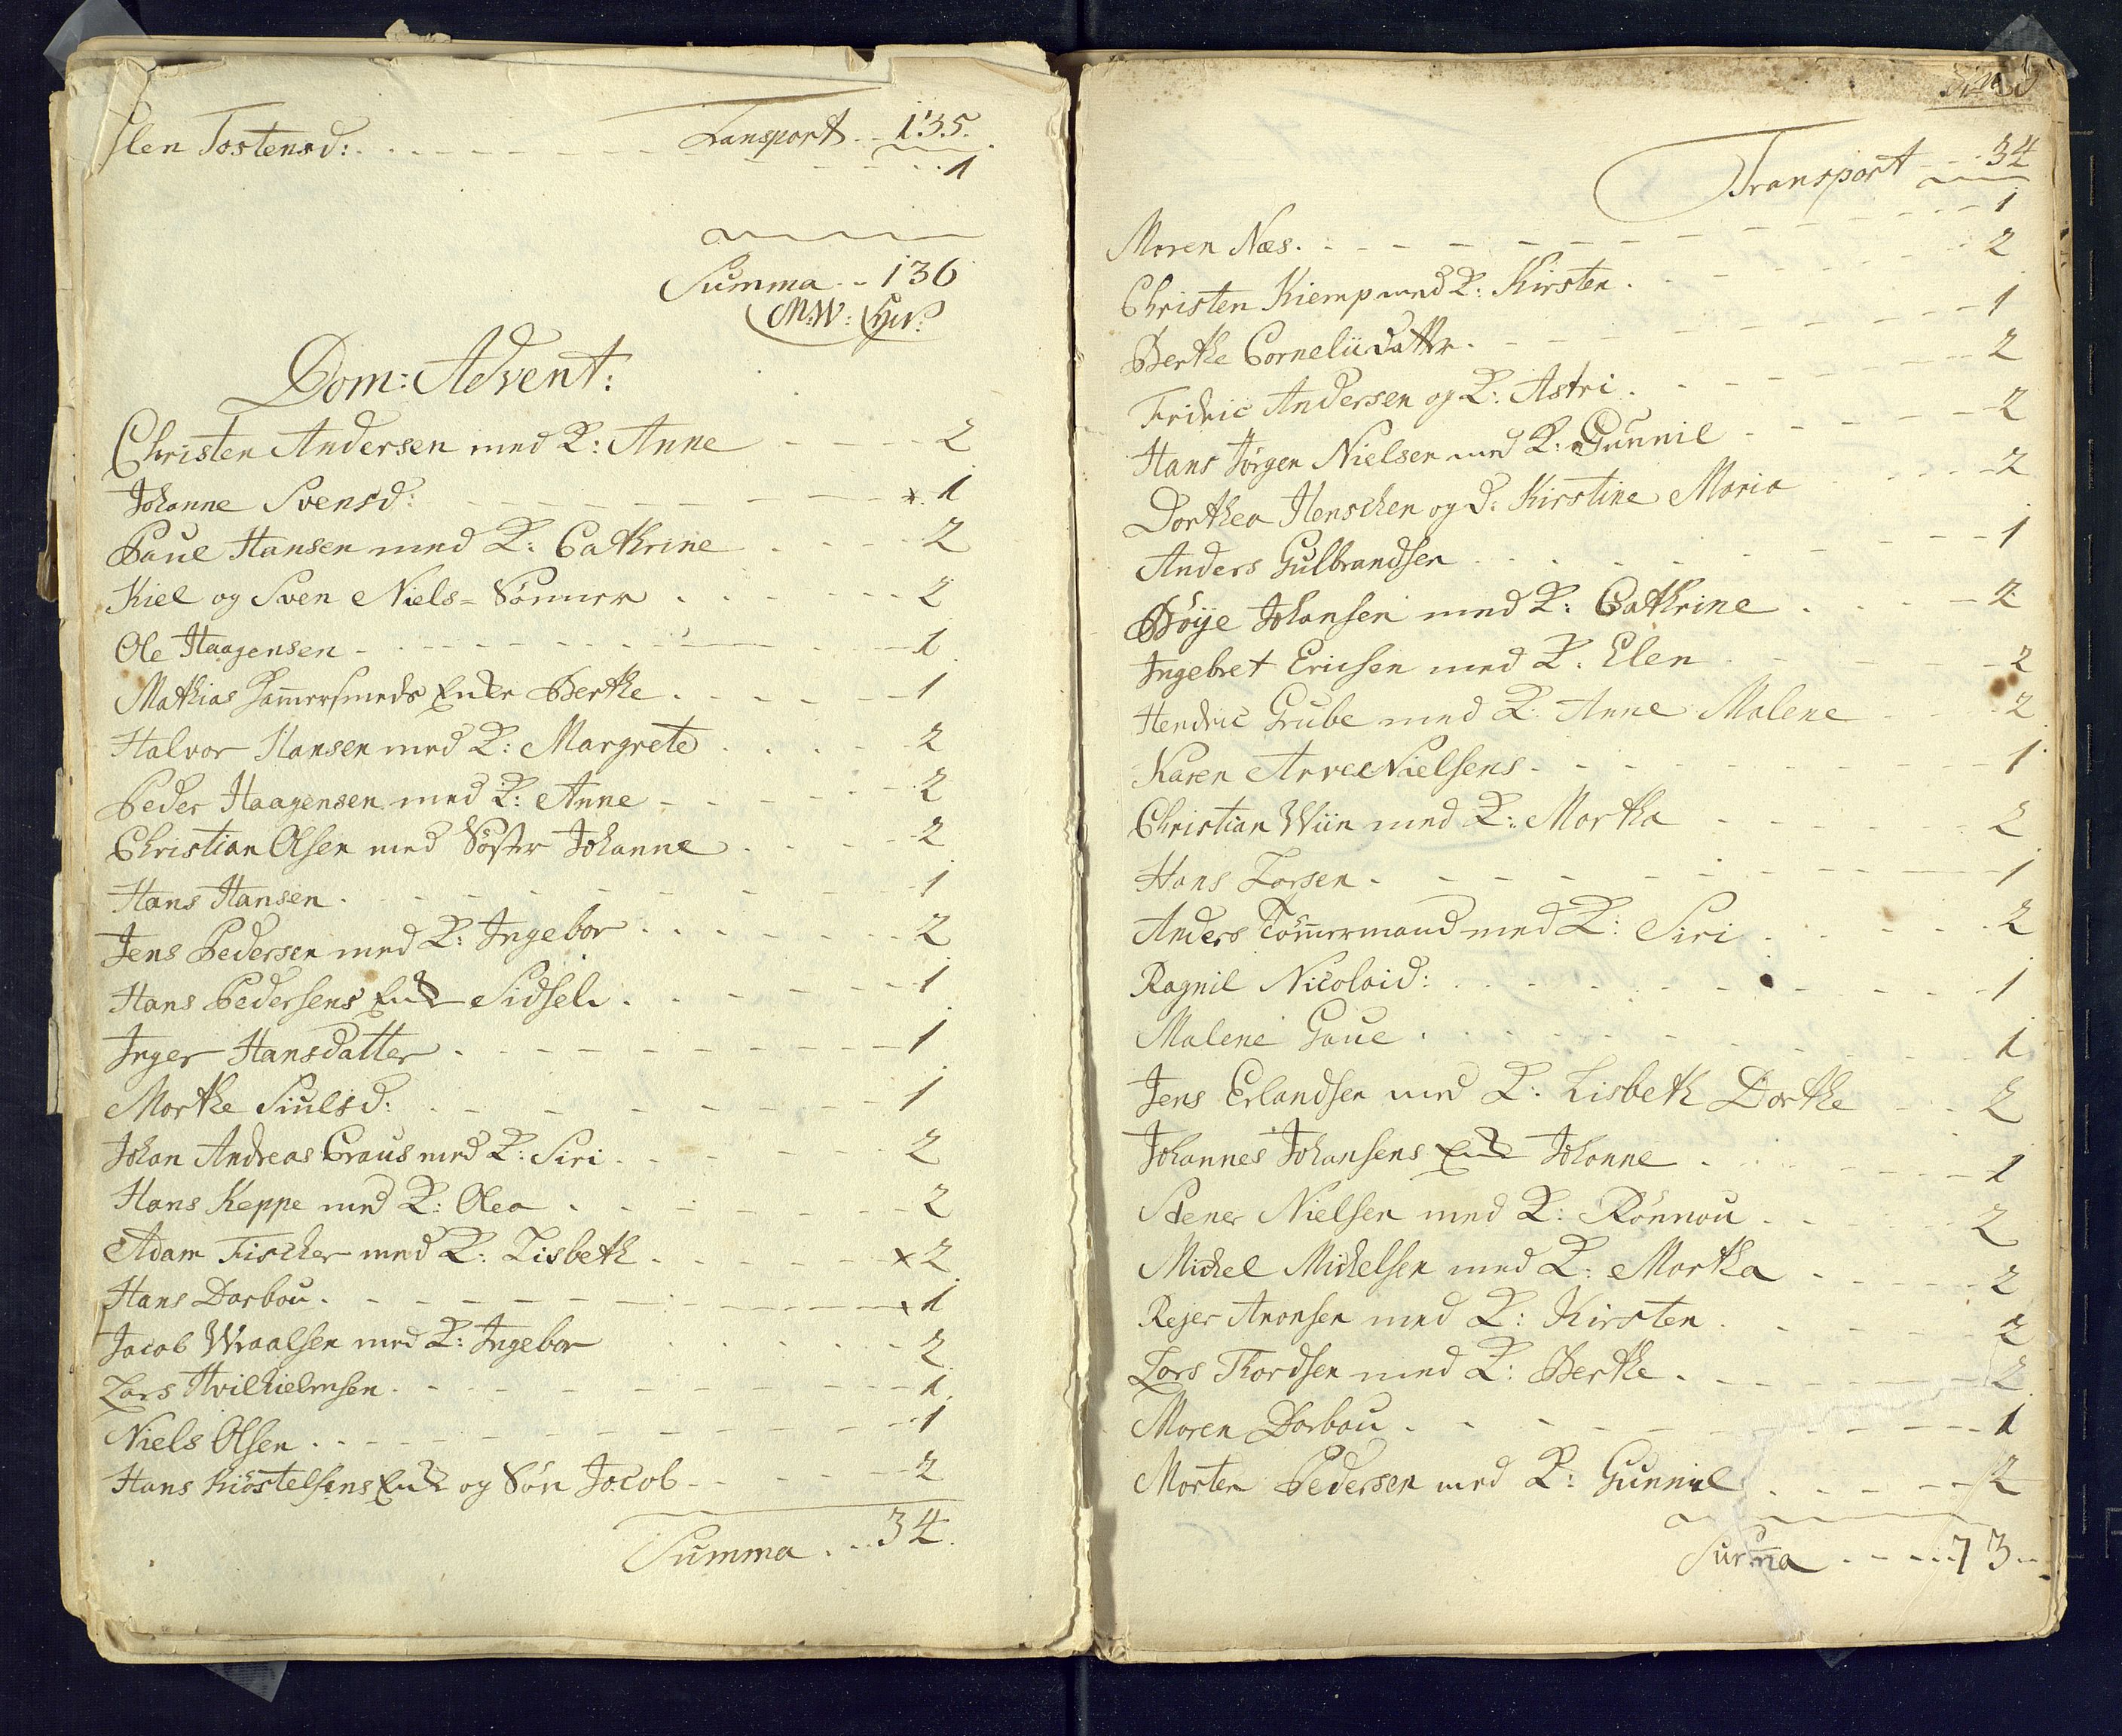 Transport . . 135.
Elen Tostensd: . . . 1
Summa . . 136
M:W:
Dom: Advent:
Christen Andersen med K: Anne 2
Johanne Svensd: x 1
Paul Hansen med K: Cathrine 2
Kiel og Sven Niels=Sönner 2
Ole Haagensen 1
Mathias Hammersmeds Enke Berthe 1
Halvor Hansen med K: Margrete 2
Peder Haagensen med K: Anne 2
Christian Olsen med Söster Johanne 2
Hans Hansen 1
Jens Pedersen med K: Ingebor 2
Hans Pedersens Enke Sidsel 1
Inger Hansdatter 1
Marthe Siulsd: 1
Johan Andreas Craus med K: Siri 2
Hans Keppe med K: Olea 2
Adam Fischer med K: Lisbeth x 2
Hans Darbou x 1
Jacob Wraalsen med K: Ingebor 2
Lars Hvilhielmsen 1
Niels Olsen 1
Hans Kiöstelsens Enke og Sön Jacob 2
Summa . . . 34.
Transport . . . 34
Maren Næs. 1
Christen Kiemp med K: Kirsten 2
Berthe Corneliidatter 1
Fridric Andersen og K: Astri 2
Hans Jörgen Nielsen med K: Gunnil 2
Dorthea Henschen og D: Kirstine Maria 2
Anders Gulbrandsen 1
Böije Johansen med K: Cathrine 2
Ingebret Ericsen med K. Elen 2
Hendric Grube med K. Anne Malene 2
Karen Arve Nielsens 1
Christian Wiin med K: Martha 2
Hans Larsen 1
Anders Tömmermand med K: Siri 2
Ragnil Nicolaid: 1
Malene Gaue 1
Jens Erlandsen med K: Lisbeth Dorthe 2
Johannes Johansens Enke Johanne 1
Stener Nielsen med K: Rönnou 2
Michel Michelsen med K: Martha 2
Rejer Aronsen med K: Kirsten 2
Lars Thordsen med K: Berthe 2
Maren Darbou 1
Morten Pedersen med K: Gunnil 2
Summa . . . . 73